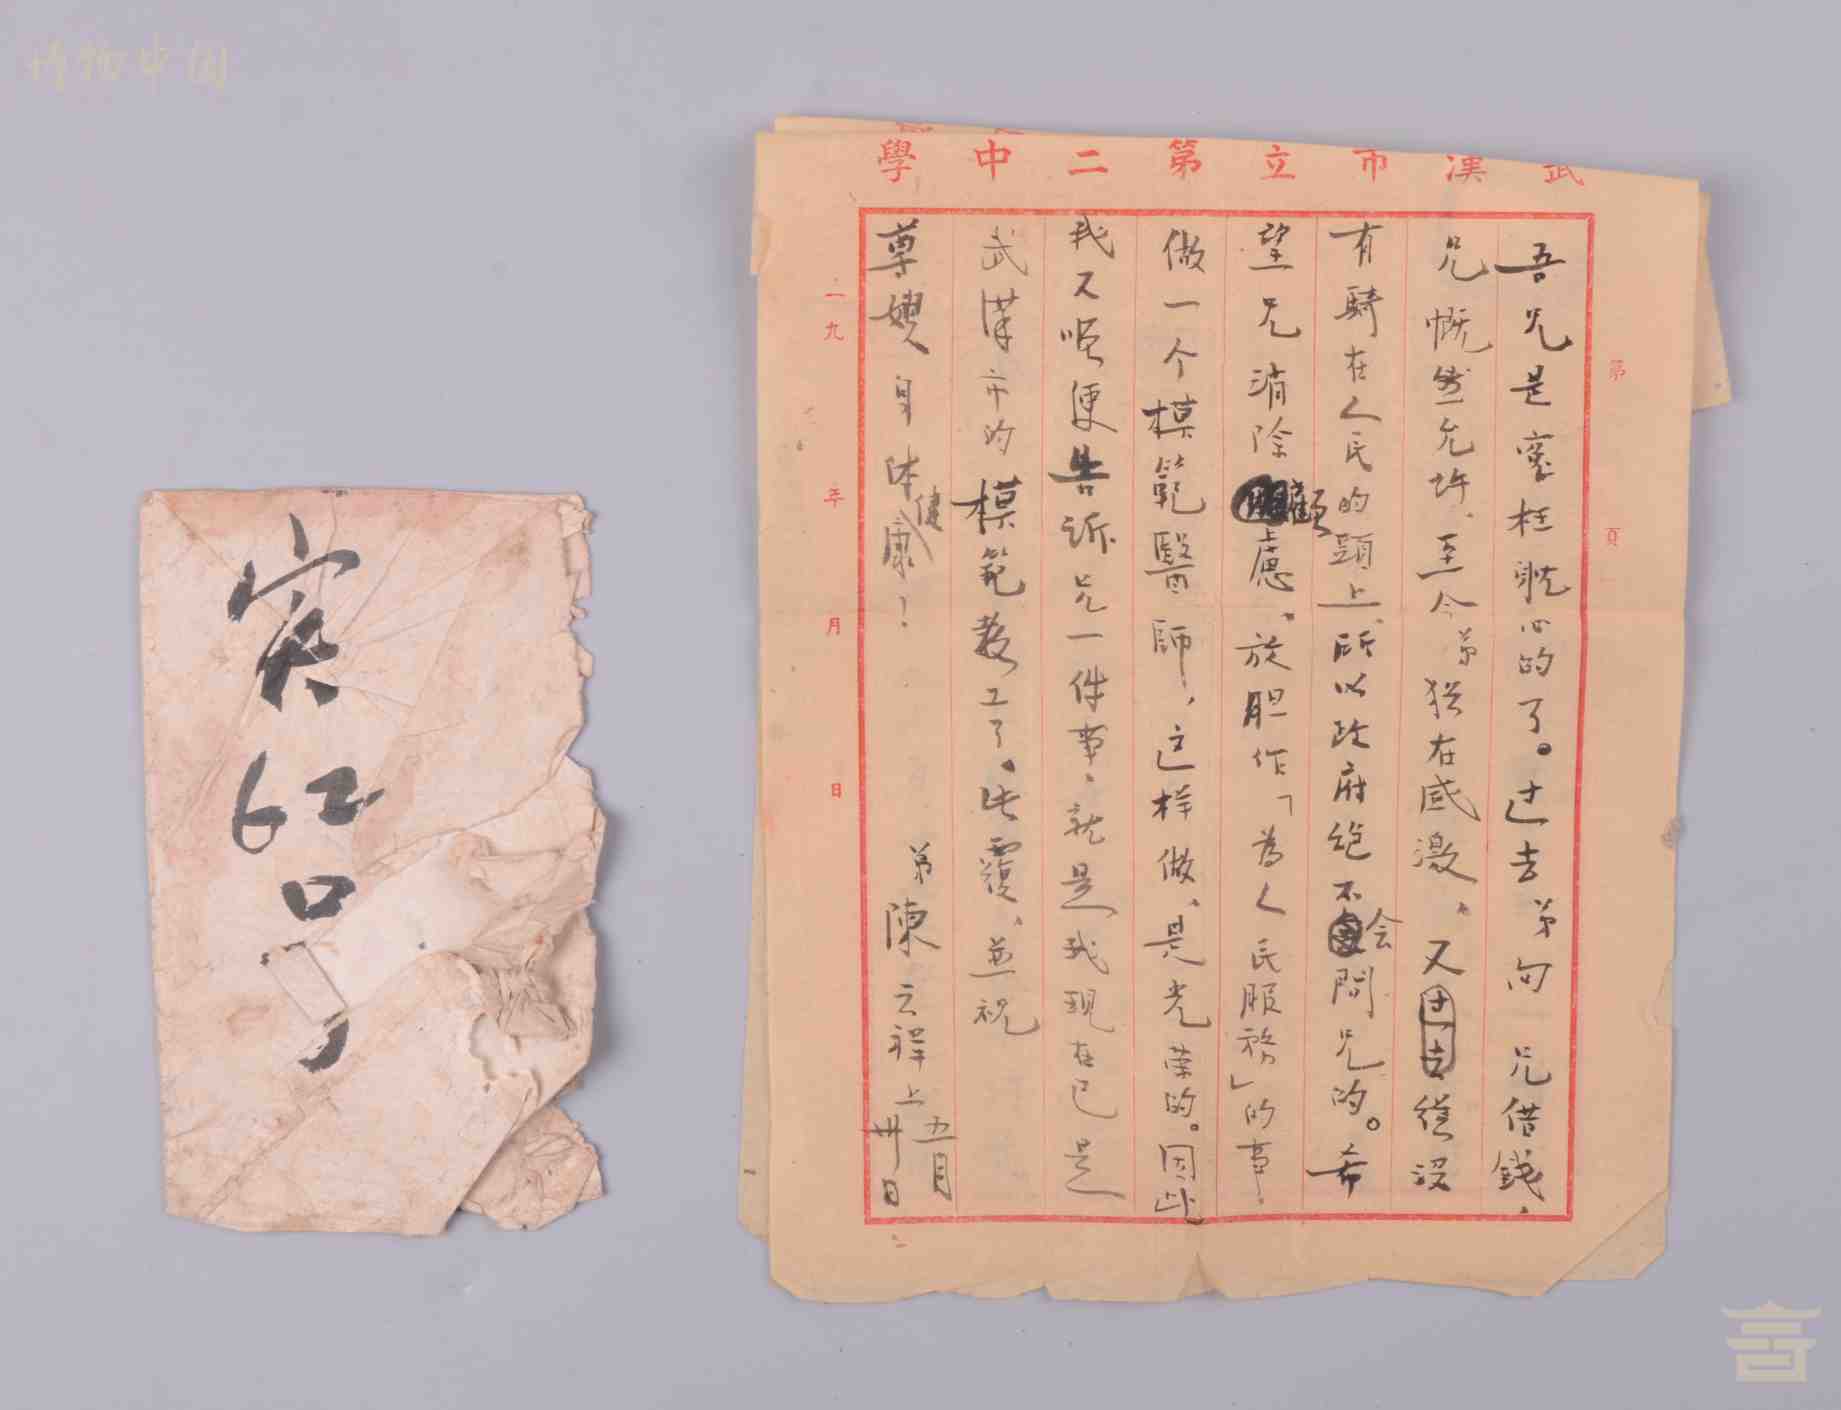 武漢市立第二中學
第 頁
吾兄是寃枉躭心的了。过去弟向 兄借錢，
兄慨然允許，至今弟犹在感激，又过去從沒
有騎在人民的頭上，所以政府绝不会問兄的。希
望兄消除顧慮。放胆作「為人民服務」的事，
做一个模範醫師，这样做，是光荣的。因此
我又順便告訴兄一件事，就是我现在已是
武漢市的模範教工了，此覆，並祝
尊嫂身体健康！
弟陳云禪上
五月
卅日
一九 年 月 日
红